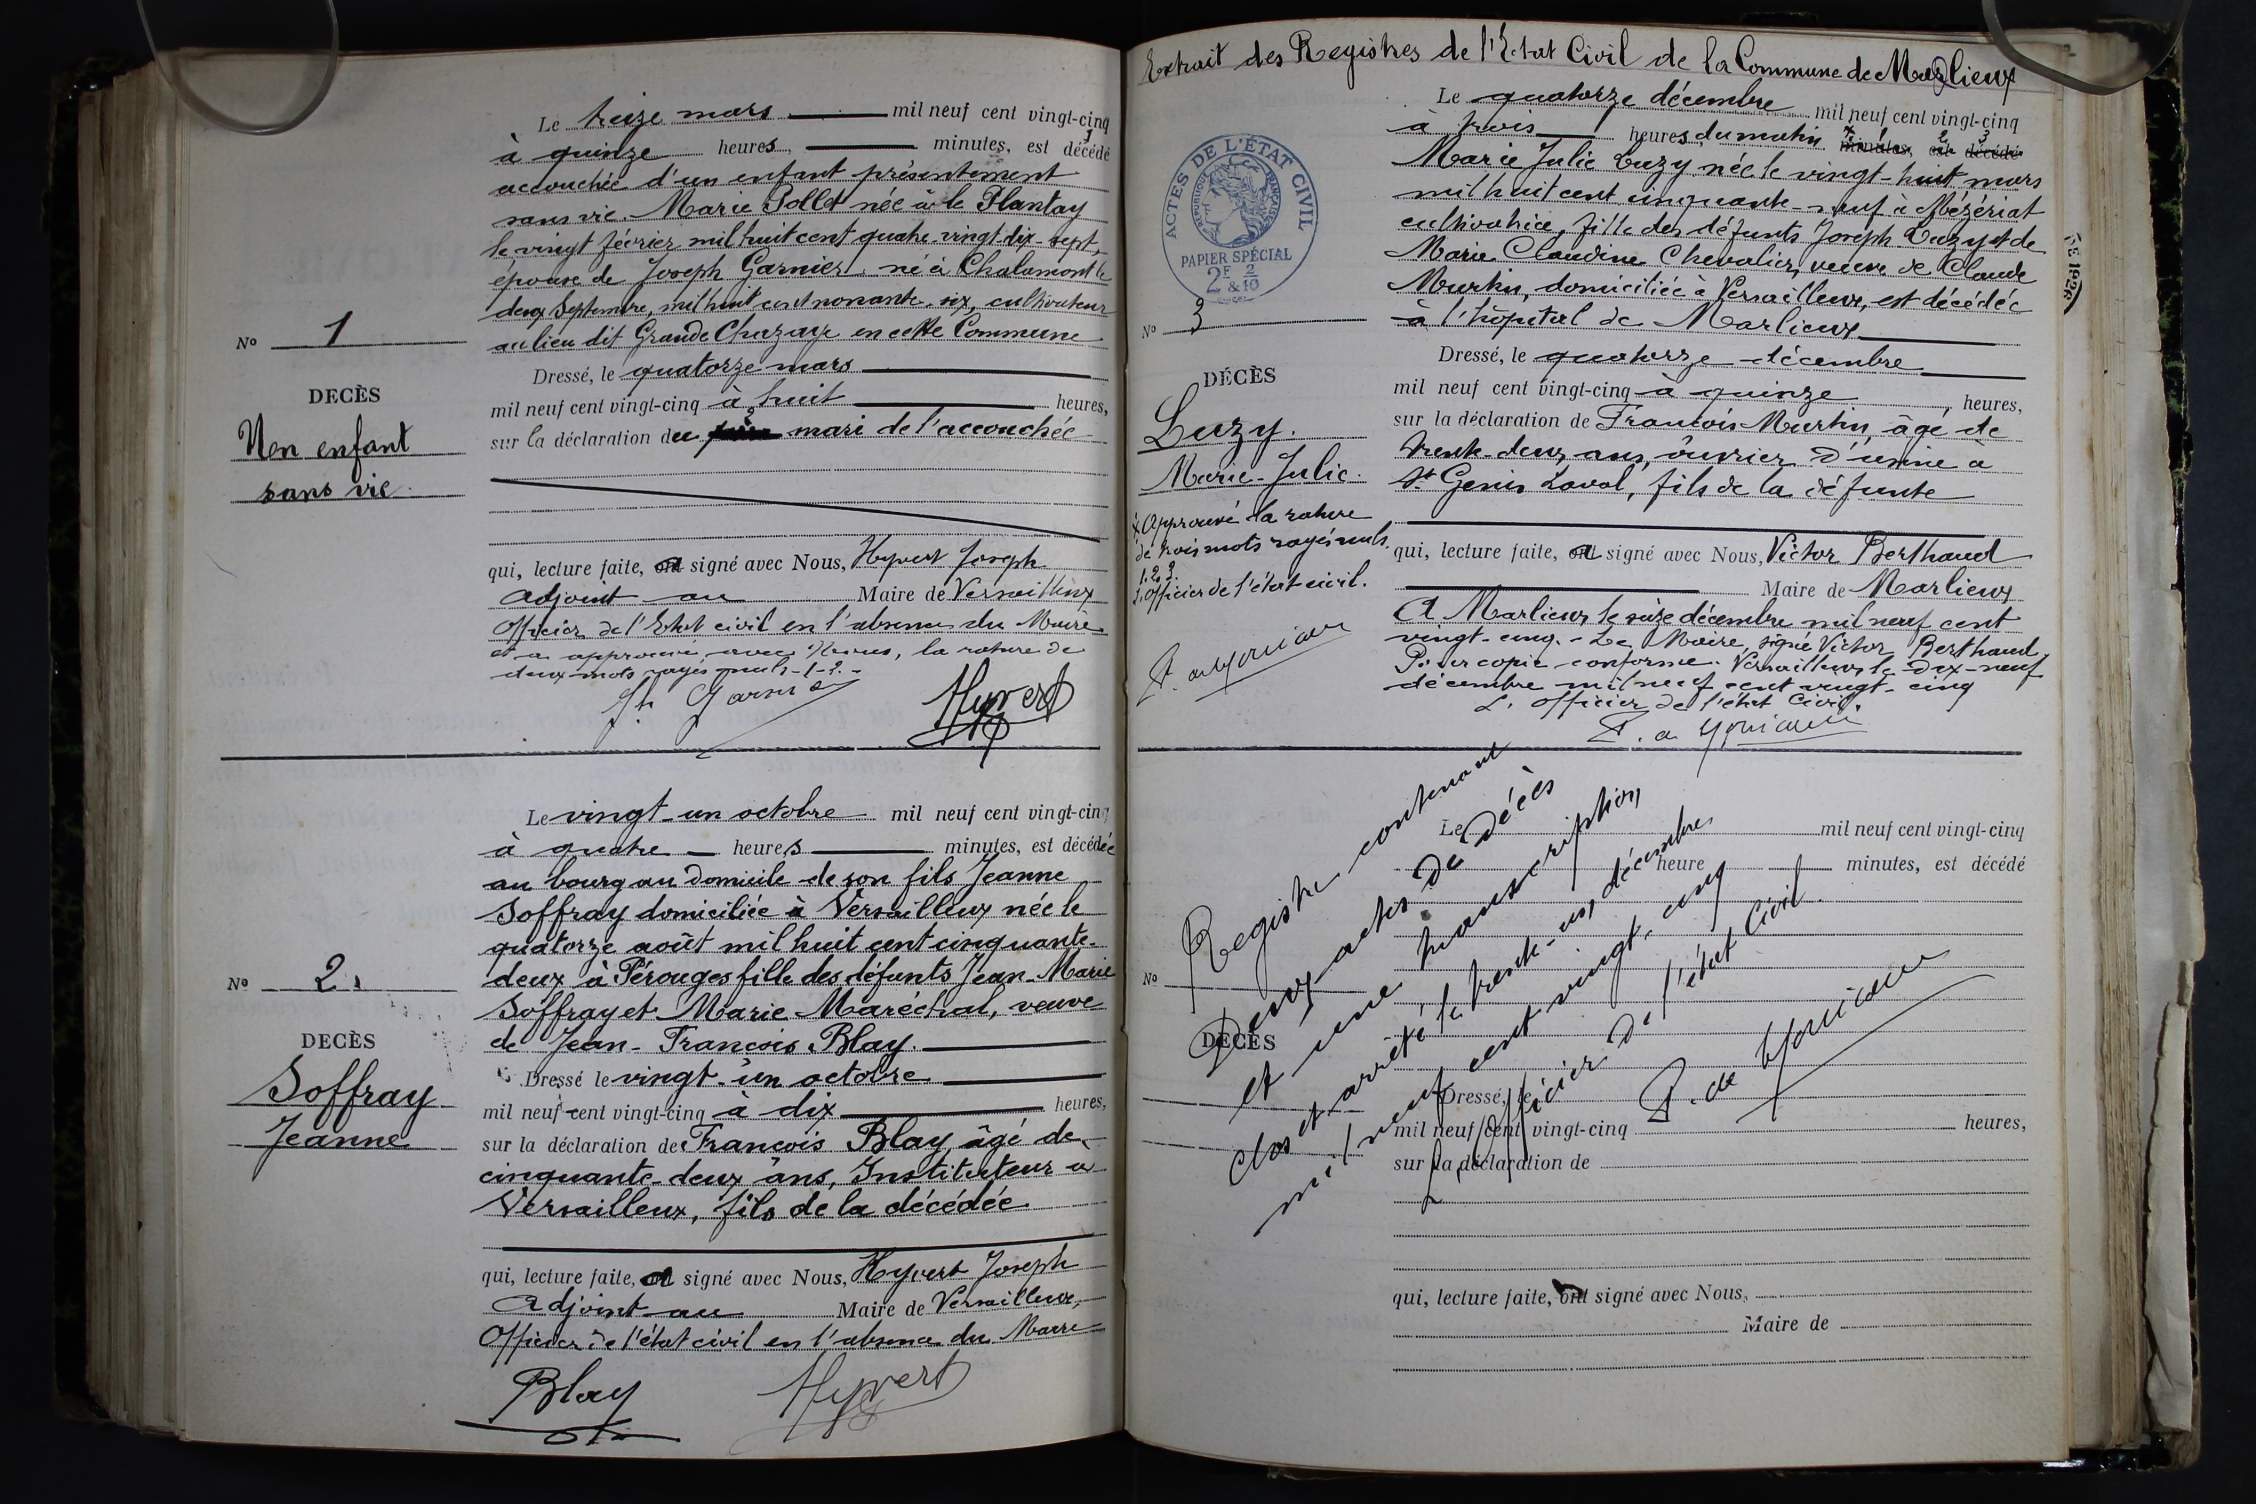 Le treize mars mil neuf cent vingt-cinq
à quinze heures, minutes, est décédé
accouchée d'un enfant présentement
sans vie. Marie Pollet née à le Plantay
le vingt février mil huit cent quatre-vingt dix-sept,
épouse de Joseph Garnier né à Chalamont le
deux Septembre, mil huit cent nonante-six, cultivateur
au lieu dit Grande Chazaye en cette Commune
No 1
Dressé, le quatorze mars
DECÈS
mil neuf cent vingt-cinq à huit heures,
Un enfant
sans vie.
sur la déclaration du mari de l'accouchée
qui, lecture faite, a signé avec Nous, Hyvert Joseph
adjoint au Maire de Versailleux
Officier de l'Etat civil en l'absence du Maire
et a approuvé avec Nous, la rature de
deux mots rayés nuls - 1 - 2 -
Jh Garnier
Hyvert
Le vingt-un octobre mil neuf cent vingt-cinq
à quatre heures minutes, est décédée
au bourg au domicile de son fils Jeanne
Soffray domiciliée à Versailleux née le
quatorze août mil huit cent cinquante-
deux à Pérouges fille des défunts Jean-Marie
Soffray et Marie Maréchal, veuve
de Jean-François Blay.
No 2
DECÈS
Soffray
Jeanne
Dressé le vingt-un octobre
mil neuf cent vingt-cinq à dix heures,
sur la déclaration de François Blay, âgé de
cinquante-deux ans, Instituteur à
Versailleux, fils de la décédée
qui, lecture faite, a signé avec Nous, Hyvert Joseph
Adjoint au Maire de Versailleux,
Officier de l'état civil en l'absence du Maire
Blay
Hyvert
Extrait des Registres de l'Etat Civil de la Commune de Marlieux
Le quatorze décembre mil neuf cent vingt-cinq
à trois heures du matin minutes, est décédé
Marie Julie Luzy née le vingt-huit mars
mil huit cent cinquante-neuf à Mézériat
cultivatrice, fille des défunts Joseph Luzy et de
Marie Claudine Chevalier, veuve de Claude
Murtin, domiciliée à Versailleux, est décédée
à l'hôpital de Marlieux
ACTES DE L'ÉTAT CIVIL
RÉPUBLIQUE FRANÇAISE
PAPIER SPÉCIAL
2F & 2/10
No 3
DÉCÈS
Luzy.
Marie-Julie.
Approuvé la rature
de trois mots rayés nuls.
1. 2. 3.
L'officier de l'état-civil.
Dressé, le quatorze décembre
mil neuf cent vingt-cinq à quinze, heures,
sur la déclaration de François Murtin, âgé de
trente-deux ans, ouvrier d'usine à
St Genis Laval, fils de la défunte
qui, lecture faite, a signé avec Nous, Victor Berthaud
Maire de Marlieux
A Marlieux le seize décembre mil neuf cent
vingt-cinq. - Le Maire, signé Victor Berthaud
Pour copie conforme. Versailleux le dix-neuf
décembre mil neuf cent vingt-cinq
L'officier de l'état civil
Registre contenant
Deux actes de décès
et une transcription
clos et arrêté le trente-un décembre
mil neuf cent vingt-cinq
L'officier de l'état Civil.
Le mil neuf cent vingt-cinq
heure minutes, est décédé
No
DÉCÈS
Dressé, le
mil neuf cent vingt-cinq heures,
sur la déclaration de
qui, lecture faite, ont signé avec Nous,
Maire de